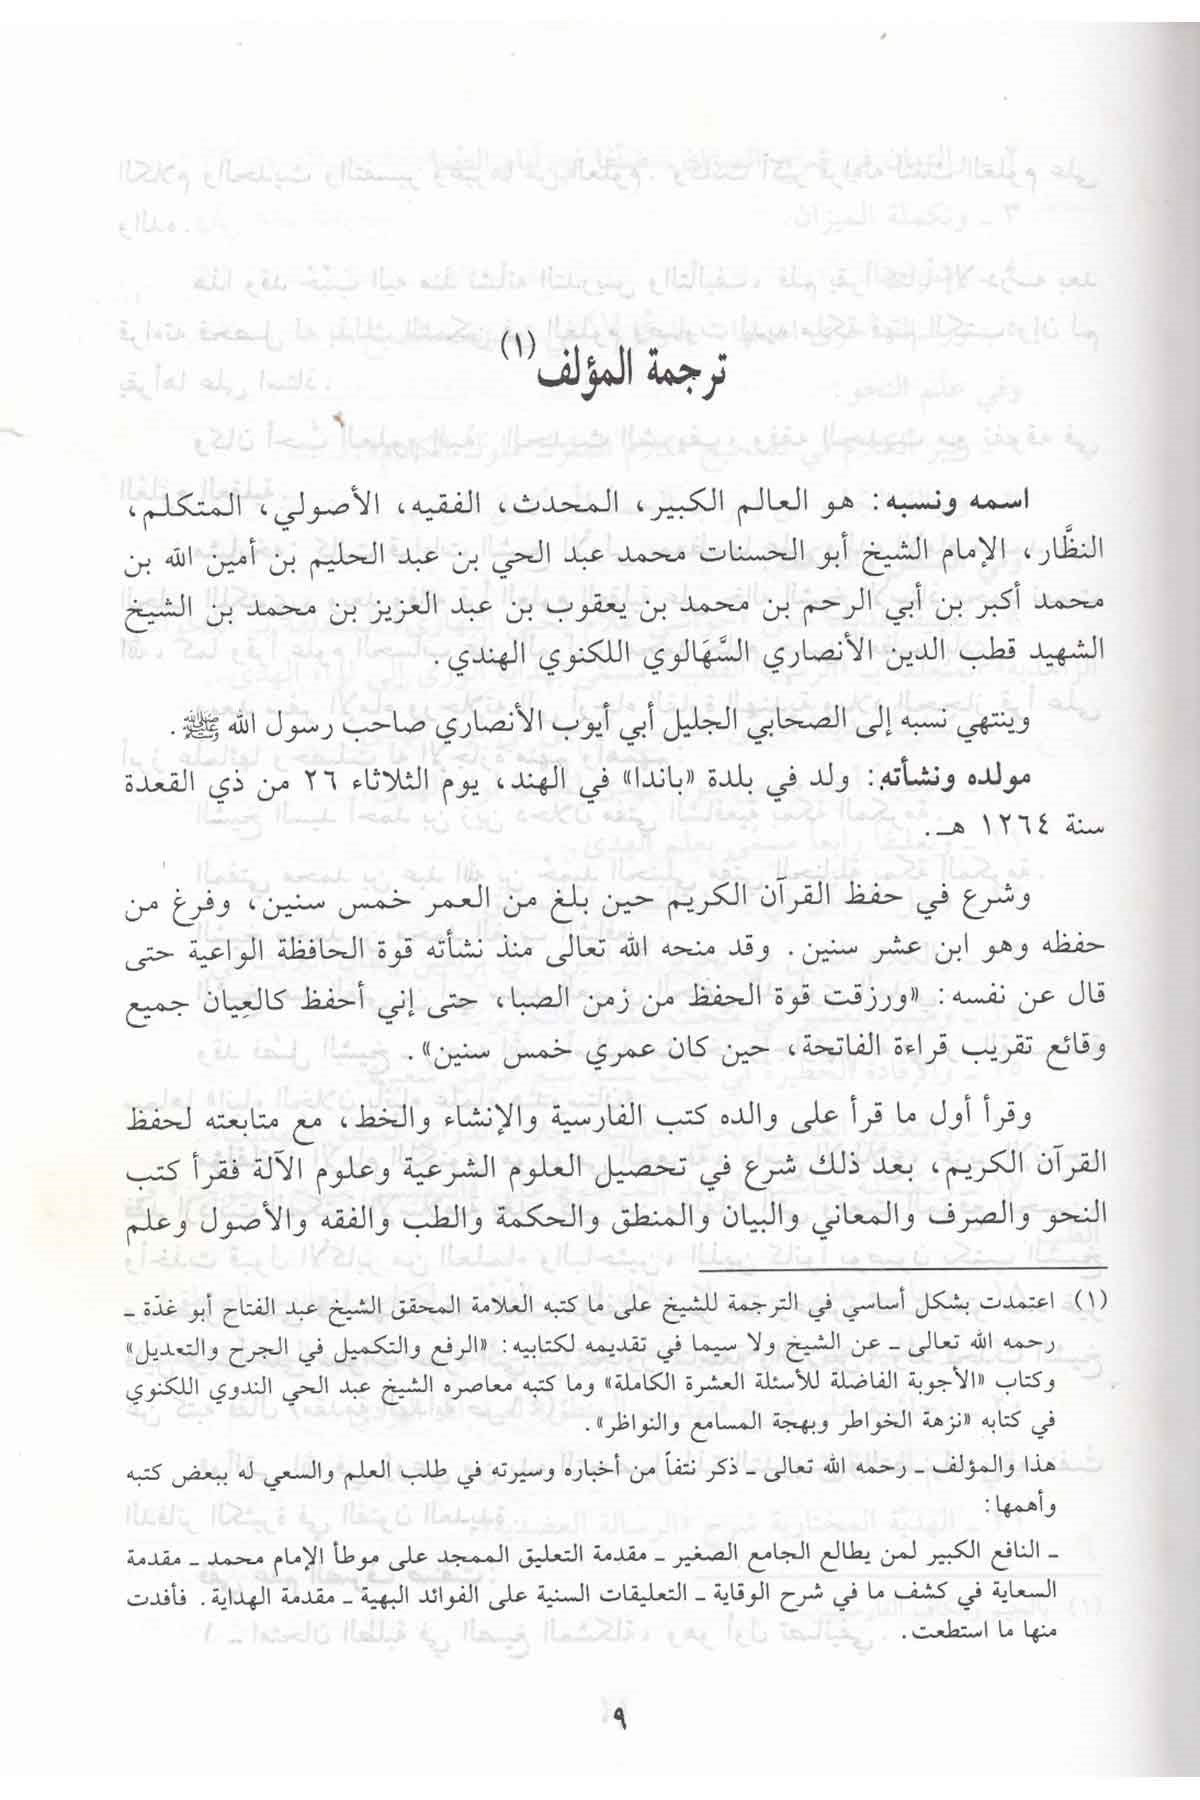 ترجمة المؤلف(١)
اسمه ونسبه: هو العالم الكبير، المحدث، الفقيه، الأصولي، المتكلم،
النظَّار، الإمام الشيخ أبو الحسنات محمد عبد الحي بن عبد الحليم بن أمين الله بن
محمد أكبر بن أبي الرحم بن محمد بن يعقوب بن عبد العزيز بن محمد بن الشيخ
الشهيد قطب الدين الأنصاري السَّهَالوي اللكنوي الهندي.
وينتهي نسبه إلى الصحابي الجليل أبي أيوب الأنصاري صاحب رسول الله ﷺ.
مولده ونشأته: ولد في بلدة «باندا» في الهند، يوم الثلاثاء ٢٦ من ذي القعدة
سنة ١٢٦٤ هـ.
وشرع في حفظ القرآن الكريم حين بلغ من العمر خمس سنين، وفرغ من
حفظه وهو ابن عشر سنين. وقد منحه الله تعالى منذ نشأته قوة الحافظة الواعية حتى
قال عن نفسه: «ورزقت قوة الحفظ من زمن الصبا، حتى إني أحفظ كالعِيان جميع
وقائع تقريب قراءة الفاتحة، حين كان عمري خمس سنين».
وقرأ أول ما قرأ على والده كتب الفارسية والإنشاء والخط، مع متابعته لحفظ
القرآن الكريم، بعد ذلك شرع في تحصيل العلوم الشرعية وعلوم الآلة فقرأ كتب
النحو والصرف والمعاني والبيان والمنطق والحكمة والطب والفقه والأصول وعلم
(١) اعتمدت بشكل أساسي في الترجمة للشيخ على ما كتبه العلامة المحقق الشيخ عبد الفتاح أبو غدّة ـ
رحمه الله تعالى ـ عن الشيخ ولا سيما في تقديمه لكتابيه: «الرفع والتكميل في الجرح والتعديل»
وكتاب «الأجوبة الفاضلة للأسئلة العشرة الكاملة» وما كتبه معاصره الشيخ عبد الحي الندوي اللكنوي
في كتابه «نزهة الخواطر وبهجة المسامع والنواظر».
هذا والمؤلف ـ رحمه الله تعالى ـ ذكر نتفاً من أخباره وسيرته في طلب العلم والسعي له ببعض كتبه
وأهمها:
ـ النافع الكبير لمن يطالع الجامع الصغير ـ مقدمة التعليق الممجد على موطأ الإمام محمد ـ مقدمة
السعاية في كشف ما في شرح الوقاية ـ التعليقات السنية على الفوائد البهية ـ مقدمة الهداية. فأفدت
منها ما استطعت.
٩